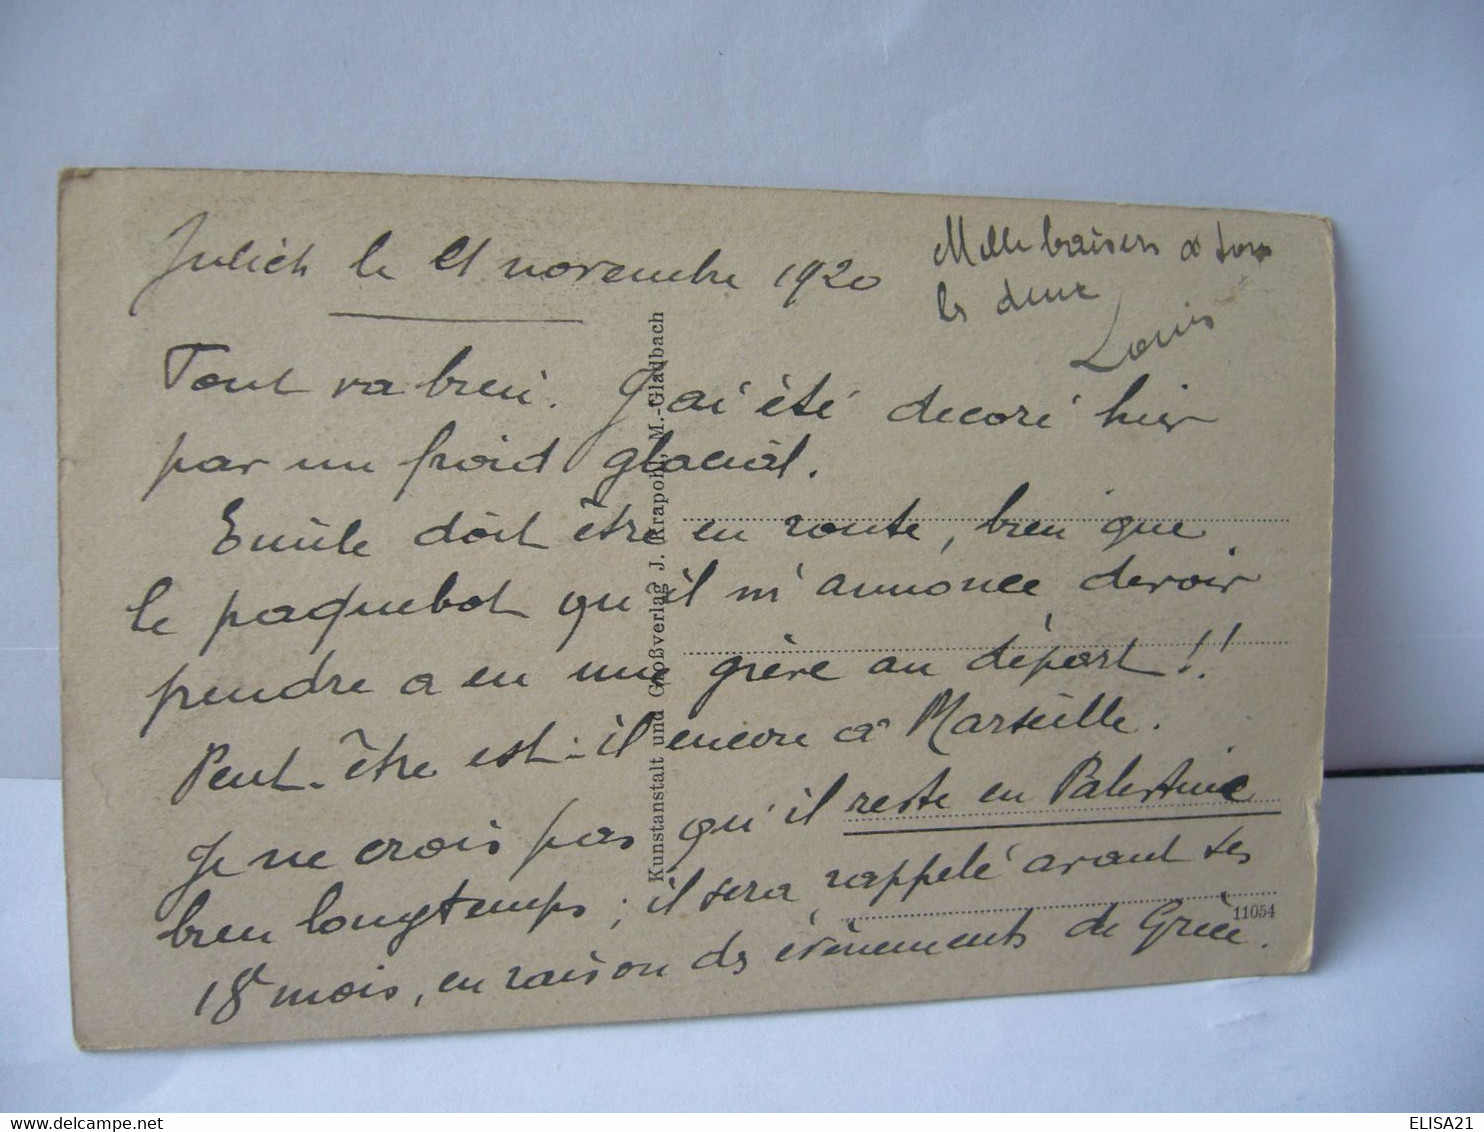 Julich le 21 novembre 1920
Mille baisers à tous
les deux
Louis
Tout va bien. J'ai été decoré hier
par un froid glacial.
Emile doit être en route, bien que
le paquebot qu'il m'annonce devoir
prendre a eu une grève au départ !!
Peut-être est-il encore à Marseille.
Je ne crois pas qu'il reste en Palestine
bien longtemps ; il sera rappelé avant ses
18 mois, en raison des évènements de Grèce.
Kunstanstalt und Großverlag J. Krapohl, M.-Gladbach
11054
ELISA21